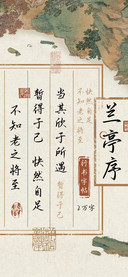 兰亭序
行书字帖
2万字
快然自足
不知老之将至
当其欣于所遇
暂得于己
暂得于己 快然自足
不知老之将至